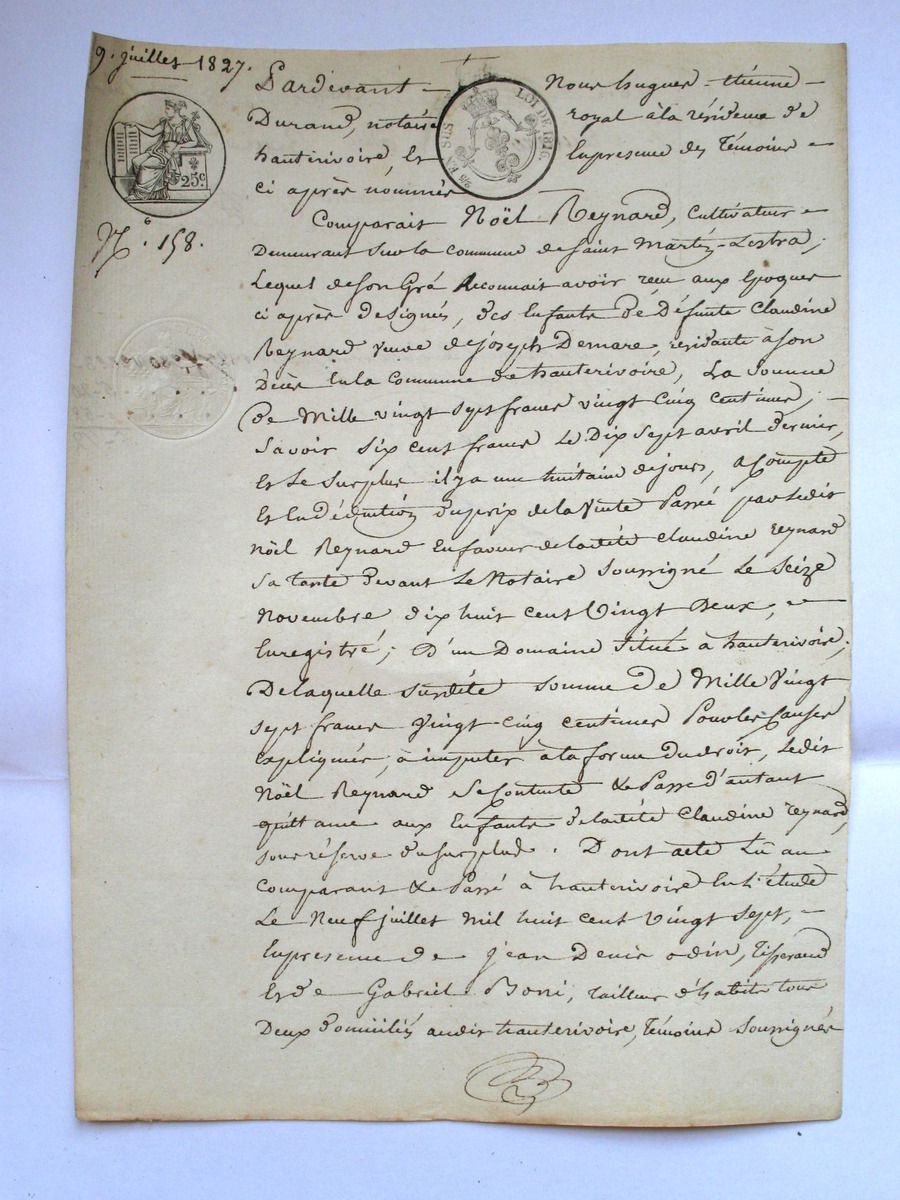 9. juillet 1827.
25c
N.º 158.
LOI DE 1816
25 EN SUS
Pardevant Nous hugues étienne
Durand, notaire royal à la résidence de
hauterivoire, Et En presence des Témoins
ci après nommés
Comparait Noël Reynard, Cultivateur
Demeurant Sur la commune de Saint Martin-Lestra,
Lequel de Son Gré Reconnait avoir recu aux Epoques
ci après designés, des Enfants de Défunte Claudine
Reynard veuve de joseph Demare, residante à Son
Décès En la Commune de hauterivoire, La Somme
de Mille vingt sept francs vingt cinq centimes,
Savoir Six cent francs Le Dix Sept avril dernier,
Et Le Surplus il y a une huitaine de jours, a Compte
Et En déduction du prix de la Vente Passé par Ledit
Noël Reynard En faveur de ladité Claudine reynard
Sa tante devant Le Notaire Soussigné Le Seize
Novembre dix huit cent Vingt Deux,
Enregistré; D'un Domaine Situé à hauterivoire;
De laquelle Surdité Somme de Mille Vingt
Sept francs Vingt cinq centimes Pour les Causes
Expliqués, à imputer à la forme du droit, Ledit
Noël Reynard Se Contente & Passe D'autant
quittance aux Enfants de ladité Claudine reynard,
sous réserve du surplus. Dont acte Lû au
Comparant & Passé à hauterivoire En L'étude
Le Neuf juillet Mil huit cent Vingt Sept,
En presence de jean Denis odin, Tisserand
Et de Gabriel Boni, tailleur d'habits tous
Deux Domiciliés audit hauterivoire, Témoins Soussignés